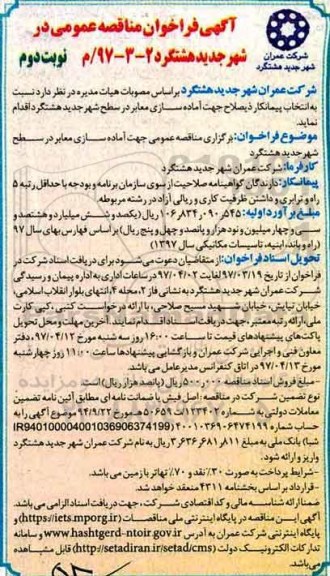 آگهی فراخوان مناقصه عمومی در
شهر جدید هشتگرد ۲-۳-۹۷/م نوبت دوم
شرکت عمران
شهر جدید هشتگرد
شرکت عمران شهر جدید هشتگرد بر اساس مصوبات هیات مدیره در نظر دارد نسبت
به انتخاب پیمانکار ذیصلاح جهت آماده سازی معابر در سطح شهر جدید هشتگرد اقدام
نماید.
موضوع فراخوان: برگزاری مناقصه عمومی جهت آماده سازی معابر در سطح
شهر جدید هشتگرد
کارفرما: شرکت عمران شهر جدید هشتگرد
پیمانکار: دارندگان گواهینامه صلاحیت از سوی سازمان برنامه و بودجه با حداقل رتبه ۵
راه و ترابری و داشتن ظرفیت کاری و ریالی آزاد در رشته مربوطه.
مبلغ برآورد اولیه: ۱۰۶٫۸۳۴٫۰۹۰٫۵۴۵ ریال (یکصد و شش میلیارد و هشتصد و
سی و چهار میلیون و نود هزار و پانصد و چهل و پنج ریال) بر اساس فهارس بهای سال ۹۷
(راه و باند، ابنیه، تاسیسات مکانیکی سال ۱۳۹۷)
تحویل اسناد فراخوان: از متقاضیان دعوت می‌شود برای دریافت اسناد شرکت در
فراخوان از تاریخ ۹۷/۰۳/۱۹ لغایت ۹۷/۰۴/۰۲ در ساعات اداری به اداره پیمان و رسیدگی
شرکت عمران شهر جدید هشتگرد به نشانی فاز ۲، محله ۴، انتهای بلوار انقلاب اسلامی،
خیابان نیایش، خیابان شهید مسیح صلاحی، با ارائه درخواست کتبی، کپی کارت
ملی، ارائه رتبه معتبر، جهت دریافت اسناد اقدام نمایند. آخرین مهلت و محل تحویل
پاکت‌های پیشنهادهای قیمت تا ساعت ۱۶:۰۰ روز سه شنبه مورخ ۹۷/۰۴/۱۲، دفتر
معاون فنی و اجرایی شرکت عمران و بازگشایی پیشنهادها ساعت ۱۱:۰۰ روز چهارشنبه
مورخ ۹۷/۰۴/۱۳ در اتاق کنفرانس مدیرعامل می باشد.
-مبلغ فروش اسناد مناقصه ۵۰۰٫۰۰۰ ریال (پانصد هزار ریال) است.
نوع تضمین شرکت در مناقصه: اصل فیش یا ضمانت نامه ای مطابق آئین نامه تضمین
معاملات دولتی به شماره ۱۲۳۴۰۲/ت ۵۰۶۵۹ مورخ ۹۴/۹/۲۲ موضوع آگهی را به
حساب شماره ۴۰۰۱۰۳۶۹۰۶۳۷۴۱۹۹ (IR940100004001036906374199
شبا) بانک ملی به مبلغ ۳٫۶۳۶٫۶۸۱٫۸۱۱ ریال به نام شرکت عمران شهر جدید هشتگرد
واریز و ارائه شود.
-شرایط پرداخت به صورت ۳۰٪ نقد و ۷۰٪ تهاتر با زمین می باشد.
- قرارداد بر اساس بخشنامه ۴۳۱۱ منعقد خواهد شد.
ضمناً ارائه شناسه ملی و کد اقتصادی شرکت، جهت دریافت اسناد الزامی می باشد.
آگهی این مناقصه در پایگاه اینترنتی ملی مناقصات (https://iets.mporg.ir) و
پایگاه اینترنتی شرکت عمران به آدرس www.hashtgerd-ntoir.gov.ir و سامانه
تدارکات الکترونیک دولت (http://setadiran.ir/setad/cms) قابل مشاهده
می باشد.